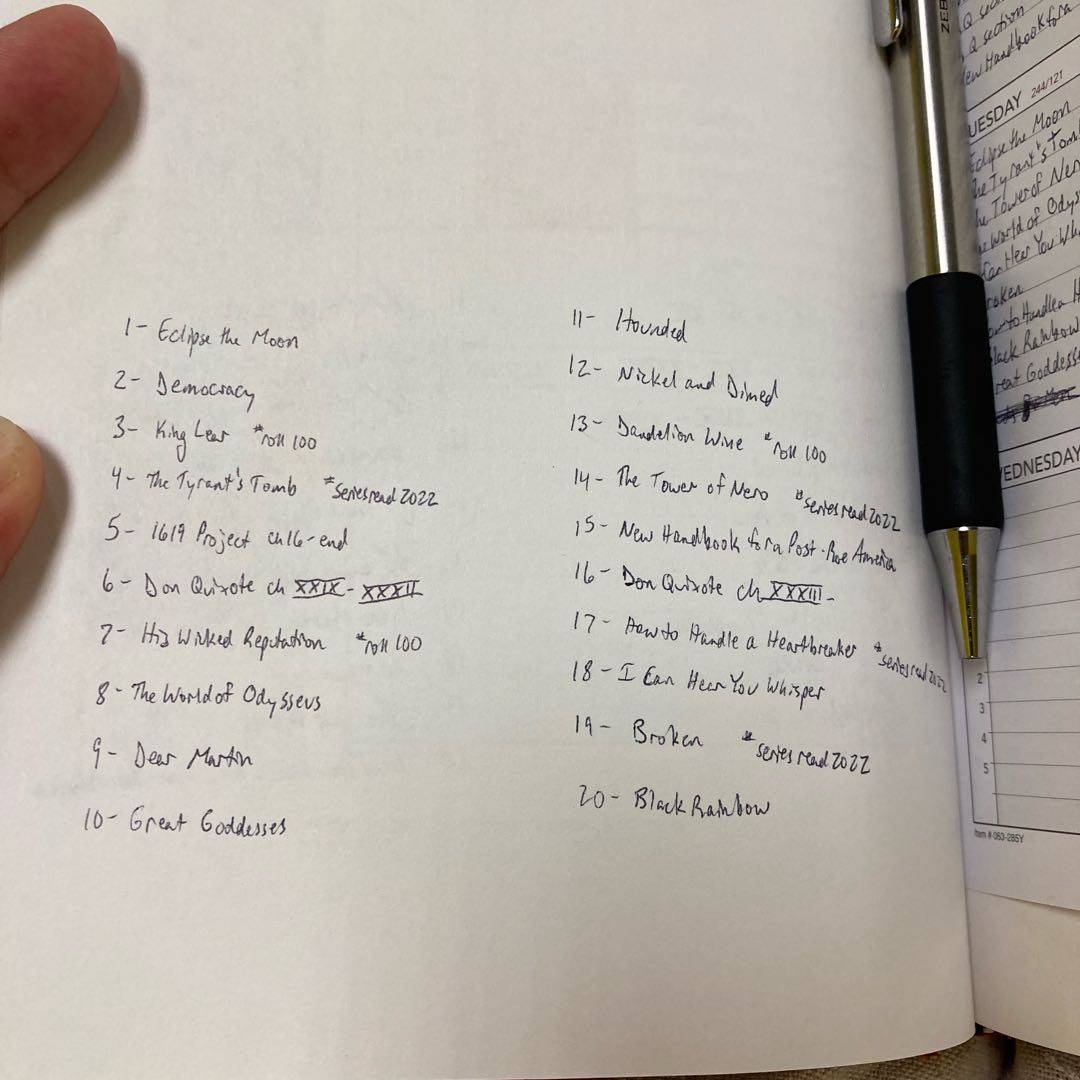 1- Eclipse the Moon
2- Democracy
3- King Lear *roll 100
4- The Tyrant's Tomb *series read 2022
5- 1619 Project ch16-end
6- Don Quixote ch XXIX- XXXII
7- His Wicked Reputation *roll 100
8- The World of Odysseus
9- Dear Martin
10- Great Goddesses
11- Hounded
12- Nickel and Dimed
13- Dandelion Wine *roll 100
14- The Tower of Nero *series read 2022
15- New Handbook for a Post-Roe America
16- Don Quixote ch XXXIII-
17- How to Handle a Heartbreaker *series read 2022
18- I Can Hear You Whisper
19- Broken *series read 2022
20- Black Rainbow
ZEB
Q section
Q section
ew Handbook for a
UESDAY 244/121
Eclipse the Moon
he Tyrant's Tomb
he Tower of Nero
he World of Odys
Can Hear You Wh
roken
ow to Handle a H
lack Rainbow
reat Goddesse
EDNESDAY
2
3
4
5
Item # 063-285Y